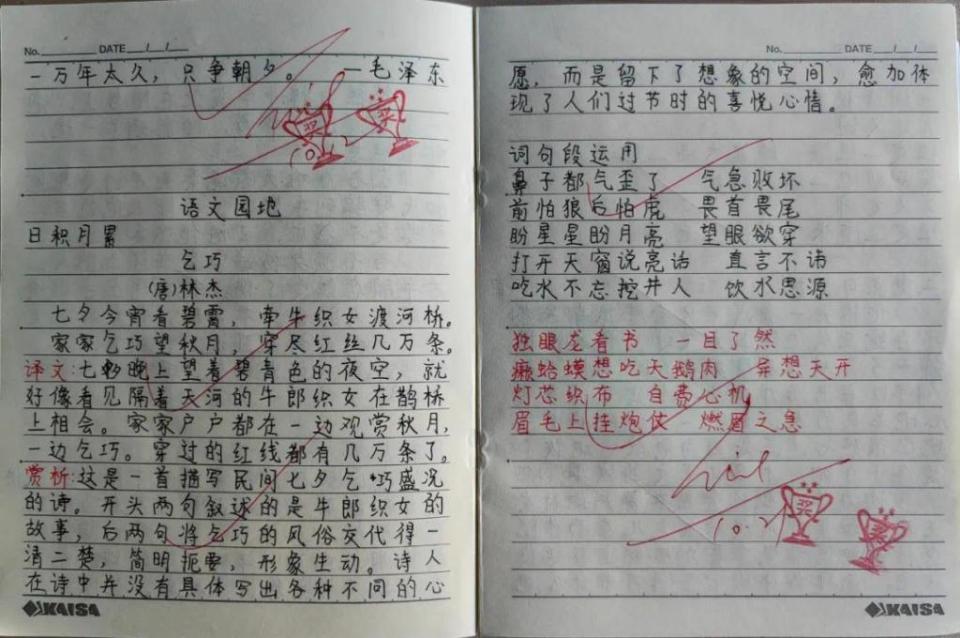 No. DATE / /
一万年太久，只争朝夕。 —毛泽东
奖
10.2
语文园地
日积月累
乞巧
(唐)林杰
七夕今宵看碧霄，牵牛织女渡河桥。
家家乞巧望秋月，穿尽红丝几万条。
译文:七夕晚上望着碧青色的夜空，就
好像看见隔着天河的牛郎织女在鹊桥
上相会。家家户户都在一边观赏秋月，
一边乞巧。穿过的红线都有几万条了。
赏析:这是一首描写民间七夕乞巧盛况
的诗。开头两句叙述的是牛郎织女的
故事，后两句将乞巧的风俗交代得一
清二楚，简明扼要，形象生动。诗人
在诗中并没有具体写出各种不同的心
KAISA
No. DATE / /
愿，而是留下了想象的空间，愈加体
现了人们过节时的喜悦心情。
词句段运用
鼻子都气歪了 气急败坏
前怕狼后怕虎 畏首畏尾
盼星星盼月亮 望眼欲穿
打开天窗说亮话 直言不讳
吃水不忘挖井人 饮水思源
独眼龙看书 一目了然
癞蛤蟆想吃天鹅肉 异想天开
灯芯织布 自费心机
眉毛上挂炮仗 燃眉之急
10.2
奖
KAISA